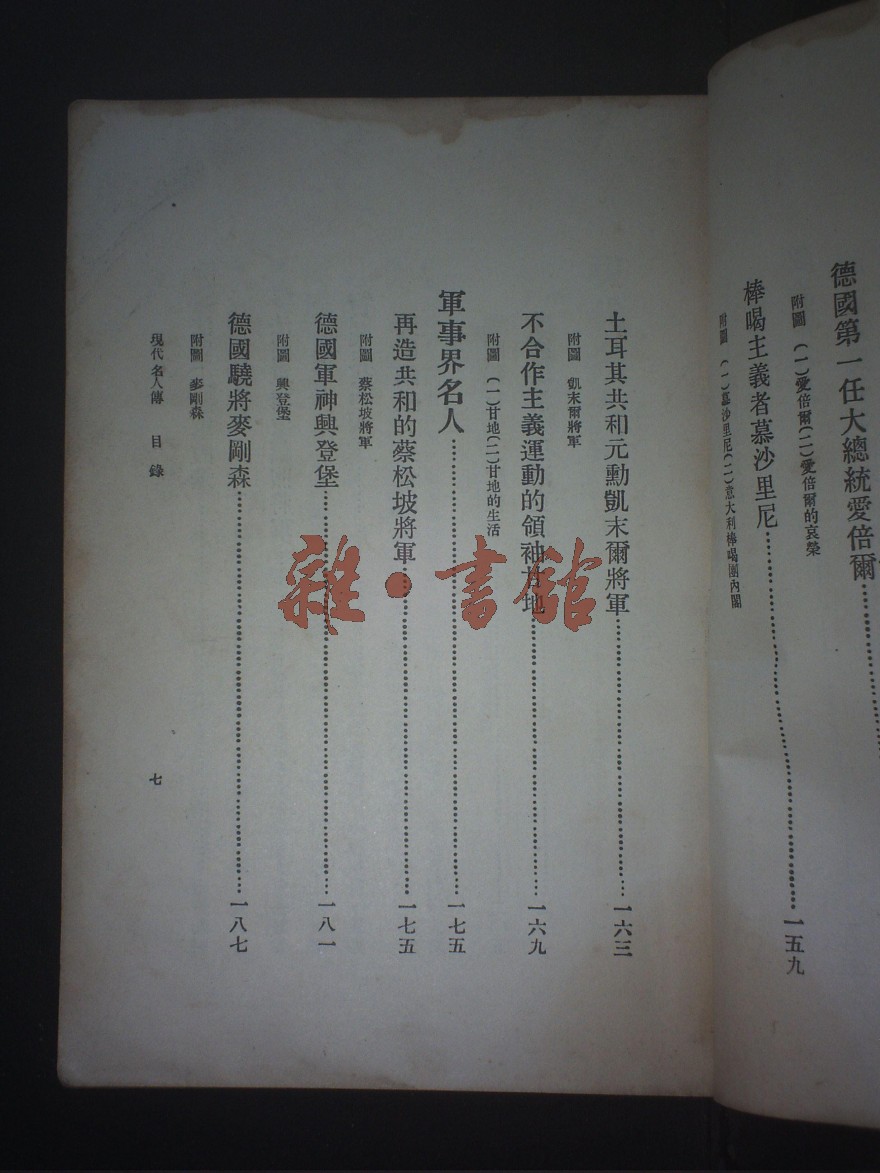 德國第一任大總統愛倍爾……
附圖 (一)愛倍爾(二)愛倍爾的哀榮
棒喝主義者慕沙里尼……一五九
附圖 (一)慕沙里尼(二)意大利棒喝團內閣
土耳其共和元勳凱末爾將軍……一六三
附圖 凱末爾將軍
不合作主義運動的領袖甘地……一六九
附圖 (一)甘地(二)甘地的生活
軍事界名人……一七五
再造共和的蔡松坡將軍……一七五
附圖 蔡松坡將軍
德國軍神興登堡……一八一
附圖 興登堡
德國驍將麥剛森……一八七
附圖 麥剛森
現代名人傳 目錄 七
雜·書館